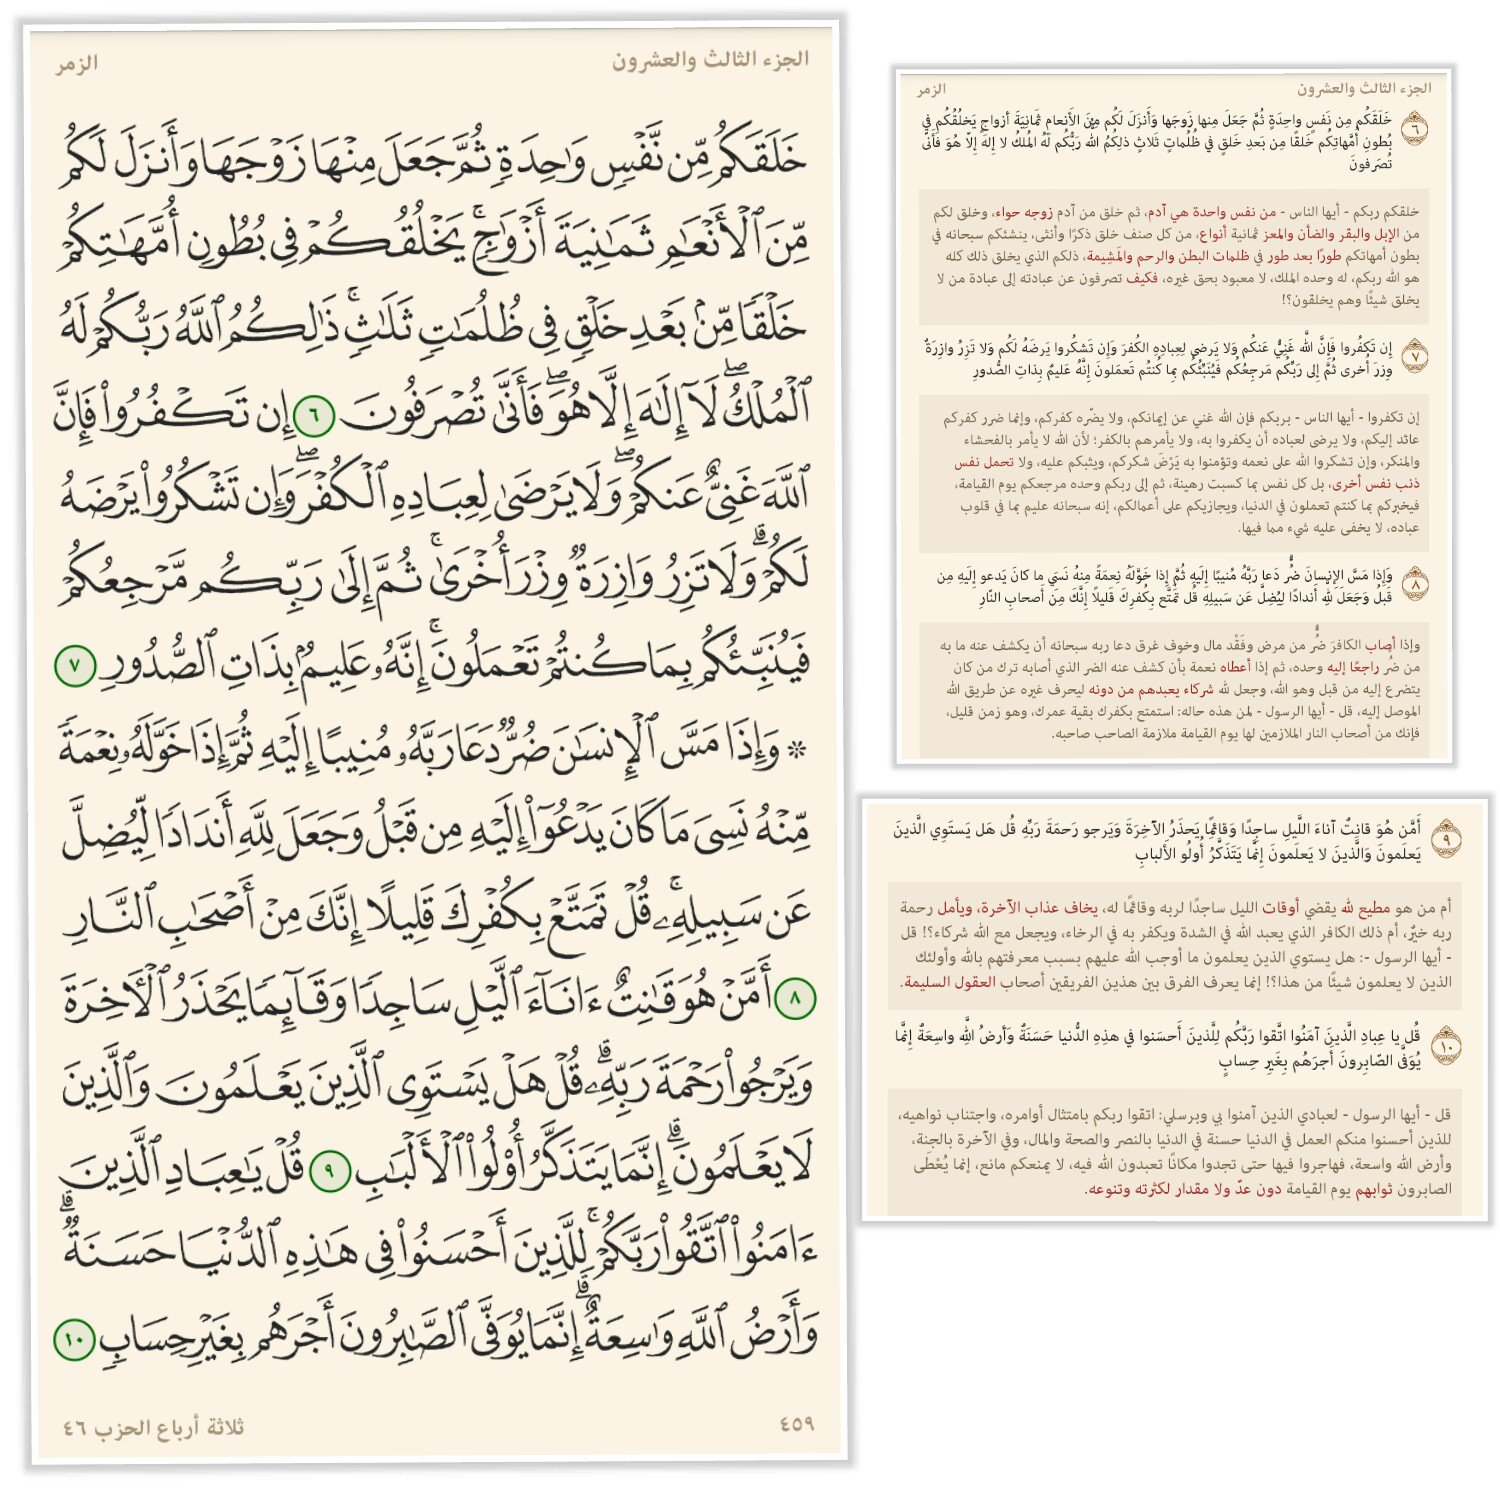 الجزء الثالث والعشرون
الزمر
خَلَقَكُم مِّن نَّفْسٍ وَٰحِدَةٍ ثُمَّ جَعَلَ مِنْهَا زَوْجَهَا وَأَنزَلَ لَكُم
مِّنَ ٱلْأَنْعَٰمِ ثَمَٰنِيَةَ أَزْوَٰجٍ ۚ يَخْلُقُكُمْ فِى بُطُونِ أُمَّهَٰتِكُمْ
خَلْقًا مِّنۢ بَعْدِ خَلْقٍ فِى ظُلُمَٰتٍ ثَلَٰثٍ ۚ ذَٰلِكُمُ ٱللَّهُ رَبُّكُمْ لَهُ
ٱلْمُلْكُ ۖ لَآ إِلَٰهَ إِلَّا هُوَ ۖ فَأَنَّىٰ تُصْرَفُونَ ٦ إِن تَكْفُرُوا۟ فَإِنَّ
ٱللَّهَ غَنِىٌّ عَنكُمْ ۖ وَلَا يَرْضَىٰ لِعِبَادِهِ ٱلْكُفْرَ ۖ وَإِن تَشْكُرُوا۟ يَرْضَهُ
لَكُمْ ۗ وَلَا تَزِرُ وَازِرَةٌ وِزْرَ أُخْرَىٰ ۚ ثُمَّ إِلَىٰ رَبِّكُم مَّرْجِعُكُمْ
فَيُنَبِّئُكُم بِمَا كُنتُمْ تَعْمَلُونَ ۚ إِنَّهُۥ عَلِيمٌۢ بِذَاتِ ٱلصُّدُورِ ٧
۞ وَإِذَا مَسَّ ٱلْإِنسَٰنَ ضُرٌّ دَعَا رَبَّهُۥ مُنِيبًا إِلَيْهِ ثُمَّ إِذَا خَوَّلَهُۥ نِعْمَةً
مِّنْهُ نَسِىَ مَا كَانَ يَدْعُوٓا۟ إِلَيْهِ مِن قَبْلُ وَجَعَلَ لِلَّهِ أَندَادًا لِّيُضِلَّ
عَن سَبِيلِهِۦ ۚ قُلْ تَمَتَّعْ بِكُفْرِكَ قَلِيلًا إِنَّكَ مِنْ أَصْحَٰبِ ٱلنَّارِ
٨ أَمَّنْ هُوَ قَٰنِتٌ ءَانَآءَ ٱلَّيْلِ سَاجِدًا وَقَآئِمًا يَحْذَرُ ٱلْءَاخِرَةَ
وَيَرْجُوا۟ رَحْمَةَ رَبِّهِۦ ۗ قُلْ هَلْ يَسْتَوِى ٱلَّذِينَ يَعْلَمُونَ وَٱلَّذِينَ
لَا يَعْلَمُونَ ۗ إِنَّمَا يَتَذَكَّرُ أُو۟لُوا۟ ٱلْأَلْبَٰبِ ٩ قُلْ يَٰعِبَادِ ٱلَّذِينَ
ءَامَنُوا۟ ٱتَّقُوا۟ رَبَّكُمْ ۚ لِلَّذِينَ أَحْسَنُوا۟ فِى هَٰذِهِ ٱلدُّنْيَا حَسَنَةٌ ۗ
وَأَرْضُ ٱللَّهِ وَٰسِعَةٌ ۗ إِنَّمَا يُوَفَّى ٱلصَّٰبِرُونَ أَجْرَهُم بِغَيْرِ حِسَابٍ ١٠
٤٥٩
ثلاثة أرباع الحزب ٤٦
الجزء الثالث والعشرون
الزمر
٦ خَلَقَكُم مِن نَفسٍ واحِدَةٍ ثُمَّ جَعَلَ مِنها زَوجَها وَأَنزَلَ لَكُم مِنَ الأَنعامِ ثَمانِيَةَ أَزواجٍ يَخلُقُكُم في
بُطونِ أُمَّهاتِكُم خَلقًا مِن بَعدِ خَلقٍ في ظُلُماتٍ ثَلاثٍ ذلِكُمُ اللَّهُ رَبُّكُم لَهُ المُلكُ لا إِلهَ إِلّا هُوَ فَأَنّى
تُصرَفونَ
خلقكم ربكم - أيها الناس - من نفس واحدة هي آدم، ثم خلق من آدم زوجه حواء، وخلق لكم
من الإبل والبقر والضأن والمعز ثمانية أنواع، من كل صنف خلق ذكرًا وأنثى، ينشئكم سبحانه في
بطون أمهاتكم طورًا بعد طور في ظلمات البطن والرحم والمَشِيمة، ذلكم الذي يخلق ذلك كله
هو الله ربكم، له وحده الملك، لا معبود بحق غيره، فكيف تصرفون عن عبادته إلى عبادة من لا
يخلق شيئًا وهم يخلقون؟!
٧ إِن تَكفُروا فَإِنَّ اللَّهَ غَنِيٌّ عَنكُم وَلا يَرضى لِعِبادِهِ الكُفرَ وَإِن تَشكُروا يَرضَهُ لَكُم وَلا تَزِرُ وازِرَةٌ
وِزرَ أُخرى ثُمَّ إِلى رَبِّكُم مَرجِعُكُم فَيُنَبِّئُكُم بِما كُنتُم تَعمَلونَ إِنَّهُ عَليمٌ بِذاتِ الصُّدورِ
إن تكفروا - أيها الناس - بربكم فإن الله غني عن إيمانكم، ولا يضّره كفركم، وإنما ضرر كفركم
عائد إليكم، ولا يرضى لعباده أن يكفروا به، ولا يأمرهم بالكفر؛ لأن الله لا يأمر بالفحشاء
والمنكر، وإن تشكروا الله على نعمه وتؤمنوا به يَرْضَ شكركم، ويثبكم عليه، ولا تحمل نفس
ذنب نفس أخرى، بل كل نفس بما كسبت رهينة، ثم إلى ربكم وحده مرجعكم يوم القيامة،
فيخبركم بما كنتم تعملون في الدنيا، ويجازيكم على أعمالكم، إنه سبحانه عليم بما في قلوب
عباده، لا يخفى عليه شيء مما فيها.
٨ وَإِذا مَسَّ الإِنسانَ ضُرٌّ دَعا رَبَّهُ مُنيبًا إِلَيهِ ثُمَّ إِذا خَوَّلَهُ نِعمَةً مِنهُ نَسِيَ ما كانَ يَدعو إِلَيهِ مِن
قَبلُ وَجَعَلَ لِلَّهِ أَندادًا لِيُضِلَّ عَن سَبيلِهِ قُل تَمَتَّع بِكُفرِكَ قَليلًا إِنَّكَ مِن أَصحابِ النّارِ
وإذا أصاب الكافرَ ضُرٌّ من مرض وفَقْد مال وخوف غرق دعا ربه سبحانه أن يكشف عنه ما به
من ضُر راجعًا إليه وحده، ثم إذا أعطاه نعمة بأن كشف عنه الضر الذي أصابه ترك من كان
يتضرع إليه من قبل وهو الله، وجعل لله شركاء يعبدهم من دونه ليحرف غيره عن طريق الله
الموصل إليه، قل - أيها الرسول - لمن هذه حاله: استمتع بكفرك بقية عمرك، وهو زمن قليل،
فإنك من أصحاب النار الملازمين لها يوم القيامة ملازمة الصاحب صاحبه.
٩ أَمَّن هُوَ قانِتٌ آناءَ اللَّيلِ ساجِدًا وَقائِمًا يَحذَرُ الآخِرَةَ وَيَرجو رَحمَةَ رَبِّهِ قُل هَل يَستَوِي الَّذينَ
يَعلَمونَ وَالَّذينَ لا يَعلَمونَ إِنَّما يَتَذَكَّرُ أُولُو الأَلبابِ
أم من هو مطيع لله يقضي أوقات الليل ساجدًا لربه وقائمًا له، يخاف عذاب الآخرة، ويأمل رحمة
ربه خيرٌ، أم ذلك الكافر الذي يعبد الله في الشدة ويكفر به في الرخاء، ويجعل مع الله شركاء؟! قل
- أيها الرسول -: هل يستوي الذين يعلمون ما أوجب الله عليهم بسبب معرفتهم بالله وأولئك
الذين لا يعلمون شيئًا من هذا؟! إنما يعرف الفرق بين هذين الفريقين أصحاب العقول السليمة.
١٠ قُل يا عِبادِ الَّذينَ آمَنُوا اتَّقوا رَبَّكُم لِلَّذينَ أَحسَنوا في هذِهِ الدُّنيا حَسَنَةٌ وَأَرضُ اللَّهِ واسِعَةٌ إِنَّما
يُوَفَّى الصّابِرونَ أَجرَهُم بِغَيرِ حِسابٍ
قل - أيها الرسول - لعبادي الذين آمنوا بي وبرسلي: اتقوا ربكم بامتثال أوامره، واجتناب نواهيه،
للذين أحسنوا منكم العمل في الدنيا حسنة في الدنيا بالنصر والصحة والمال، وفي الآخرة بالجنة،
وأرض الله واسعة، فهاجروا فيها حتى تجدوا مكانًا تعبدون الله فيه، لا يمنعكم مانع، إنما يُعْطَى
الصابرون ثوابهم يوم القيامة دون عدّ ولا مقدار لكثرته وتنوعه.